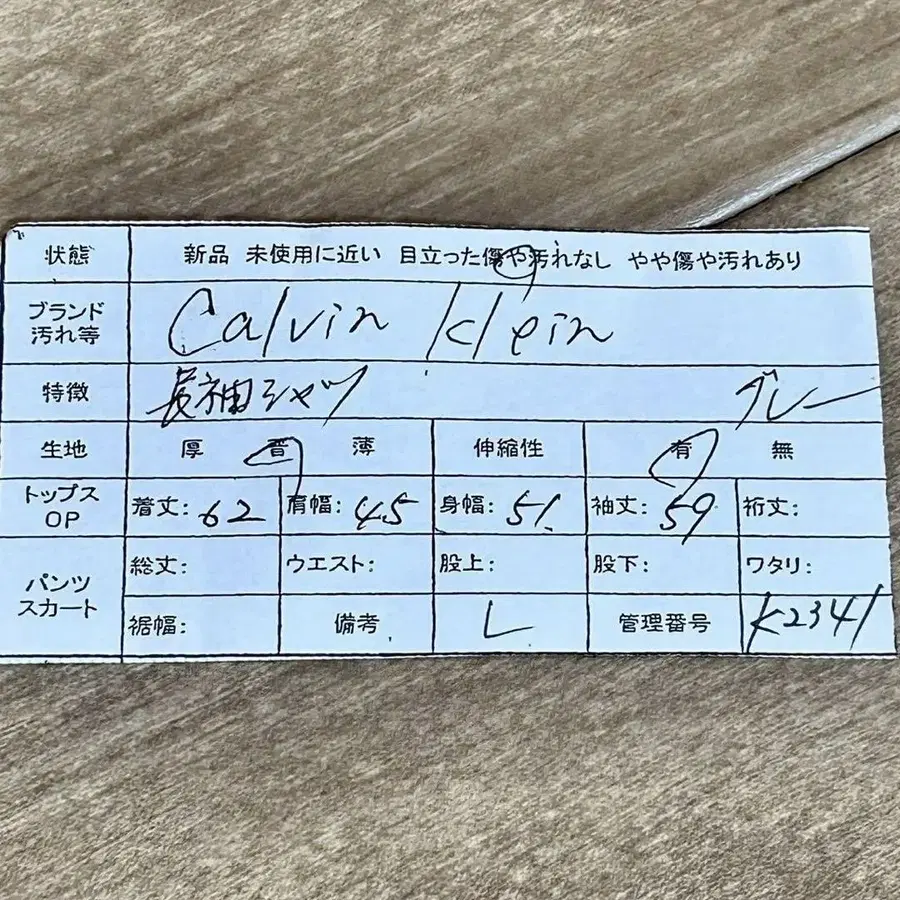 状態 新品 未使用に近い 目立った傷や汚れなし やや傷や汚れあり
ブランド
汚れ等 Calvin Klein
特徴 長袖シャツ グレー
生地 厚 普 薄 伸縮性 有 無
トップス
OP 着丈: 62 肩幅: 45 身幅: 51 袖丈: 59 裄丈:
パンツ
スカート 総丈: ウエスト: 股上: 股下: ワタリ:
裾幅: 備考 L 管理番号 K2341